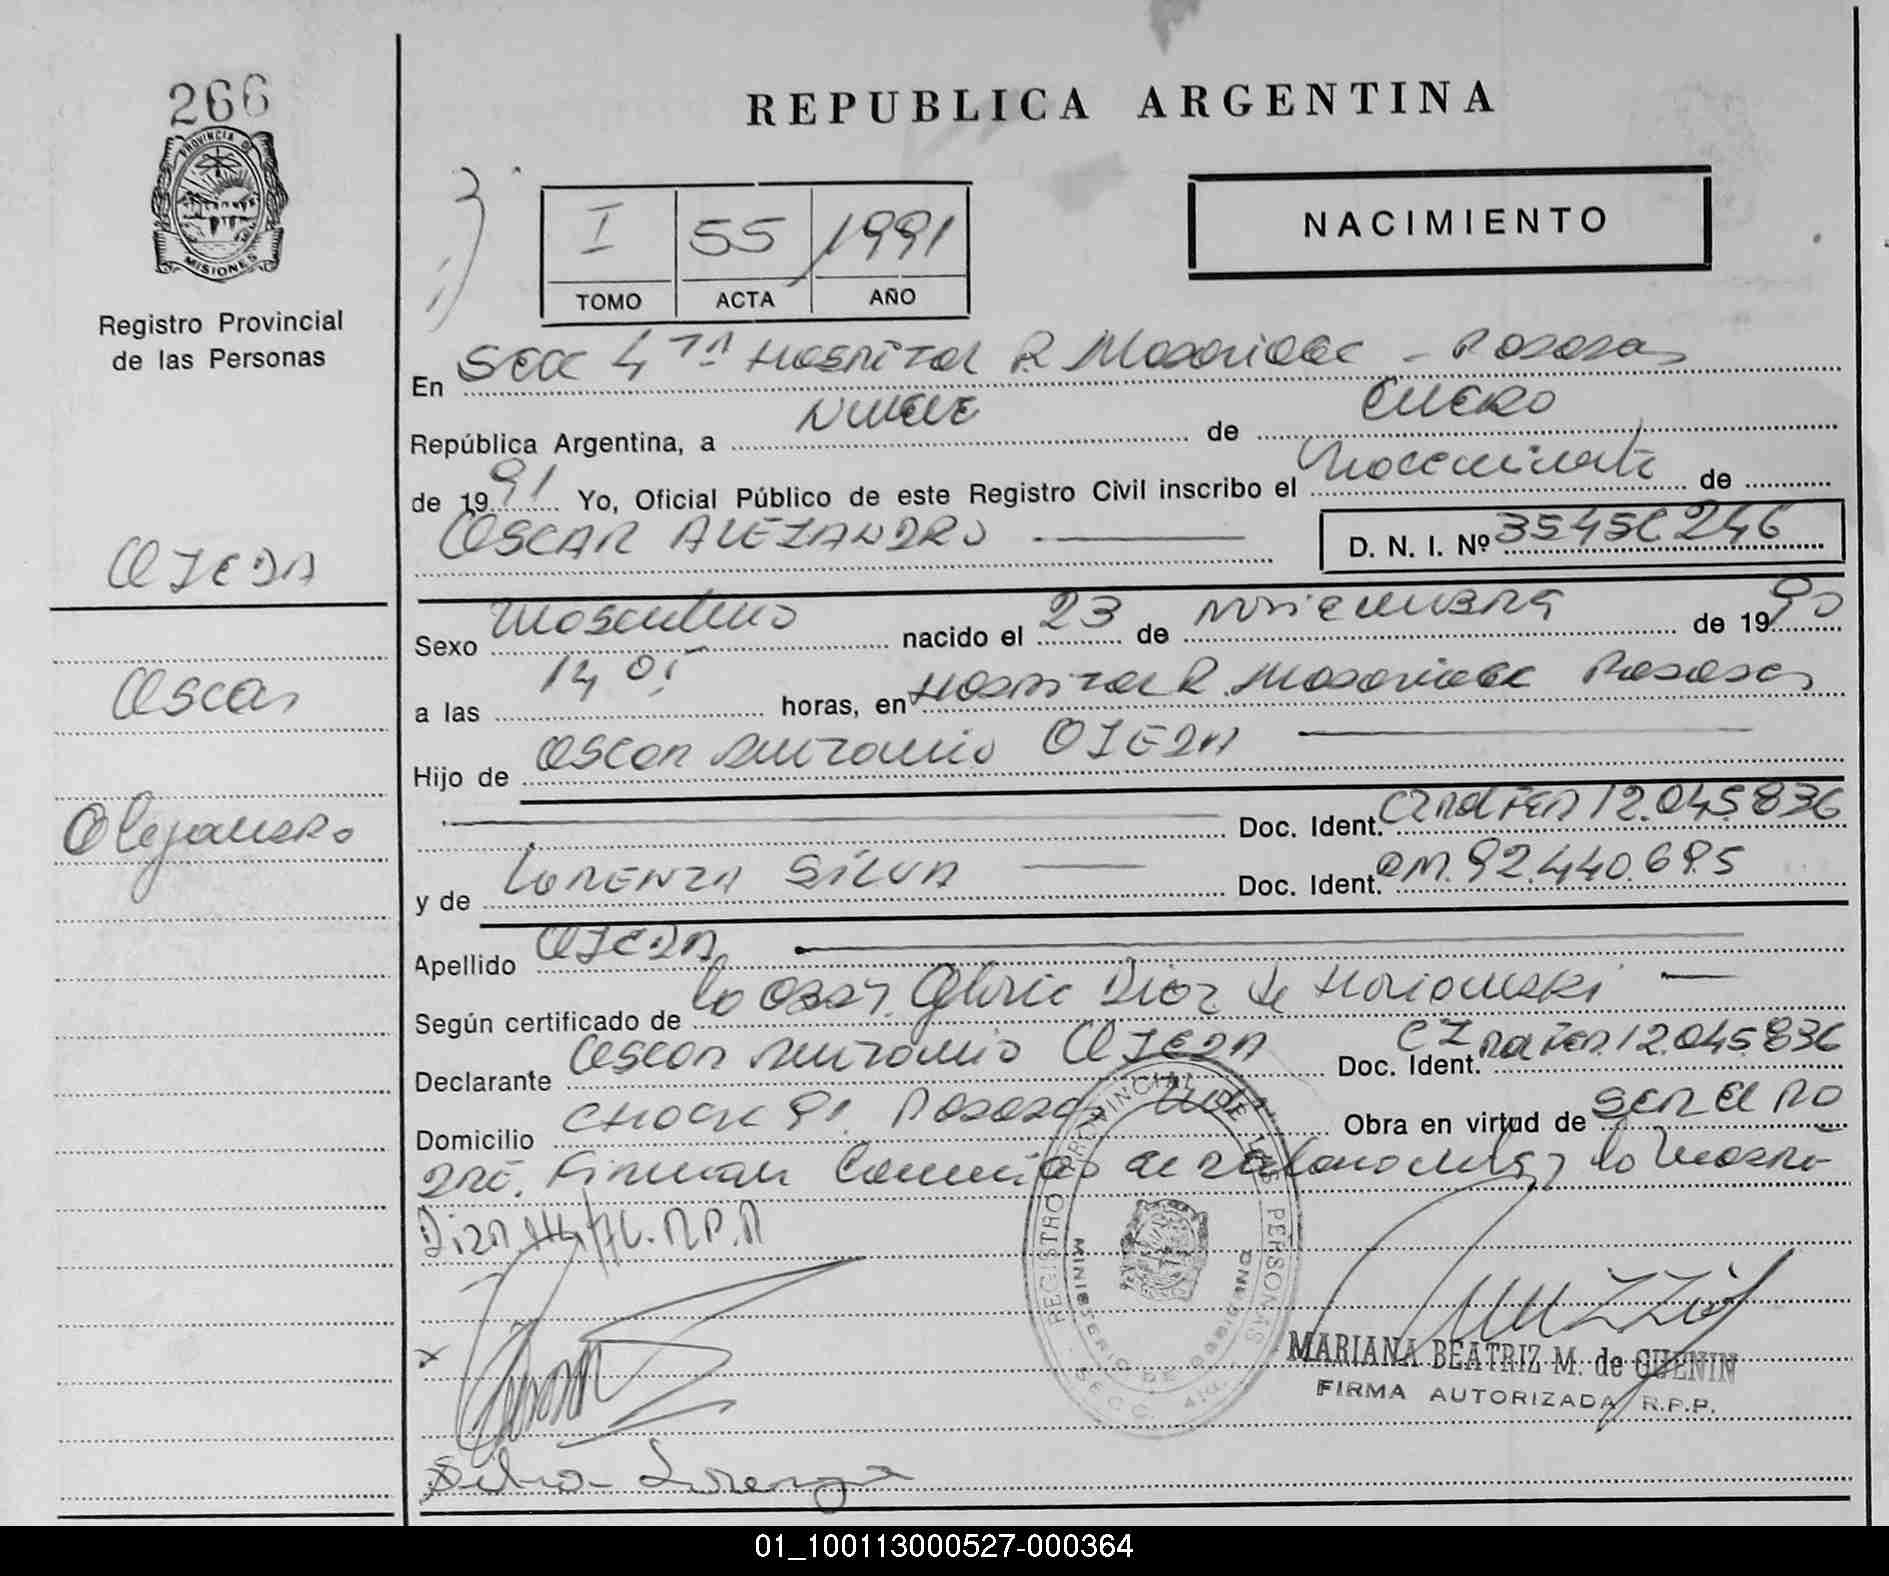 266
PROVINCIA DE
MISIONES
Registro Provincial
de las Personas
OJEDA
Oscar
Alejandro
REPUBLICA ARGENTINA
NACIMIENTO
I 55 1991
TOMO ACTA AÑO
En Secc 4ta Hospital R. Madariaga - Posadas
República Argentina, a Nueve de Enero
de 1991 Yo, Oficial Público de este Registro Civil inscribo el Nacimiento de
OSCAR ALEJANDRO D. N. I. Nº
Sexo Masculino nacido el 23 de Noviembre de 1990
a las 14,05 horas, en Hospital R. Madariaga Posadas
Hijo de Oscar Antonio OJEDA
Doc. Ident. 12.045.836
y de LORENZA SILVA Doc. Ident. 92.440.695
Apellido OJEDA
Según certificado de la Obst. Gloria Diaz de
Declarante Oscar Antonio OJEDA Doc. Ident. 12.045.836
Domicilio 91. Posadas Obra en virtud de ser el pa
dre. Firman la madre
REGISTRO PROVINCIAL DE LAS PERSONAS
MINISTERIO DE GOBIERNO
SECC. 4ta.
MARIANA BEATRIZ M. de GUENIN
FIRMA AUTORIZADA R.P.P.
x
Silva Lorenza
01_100113000527-000364